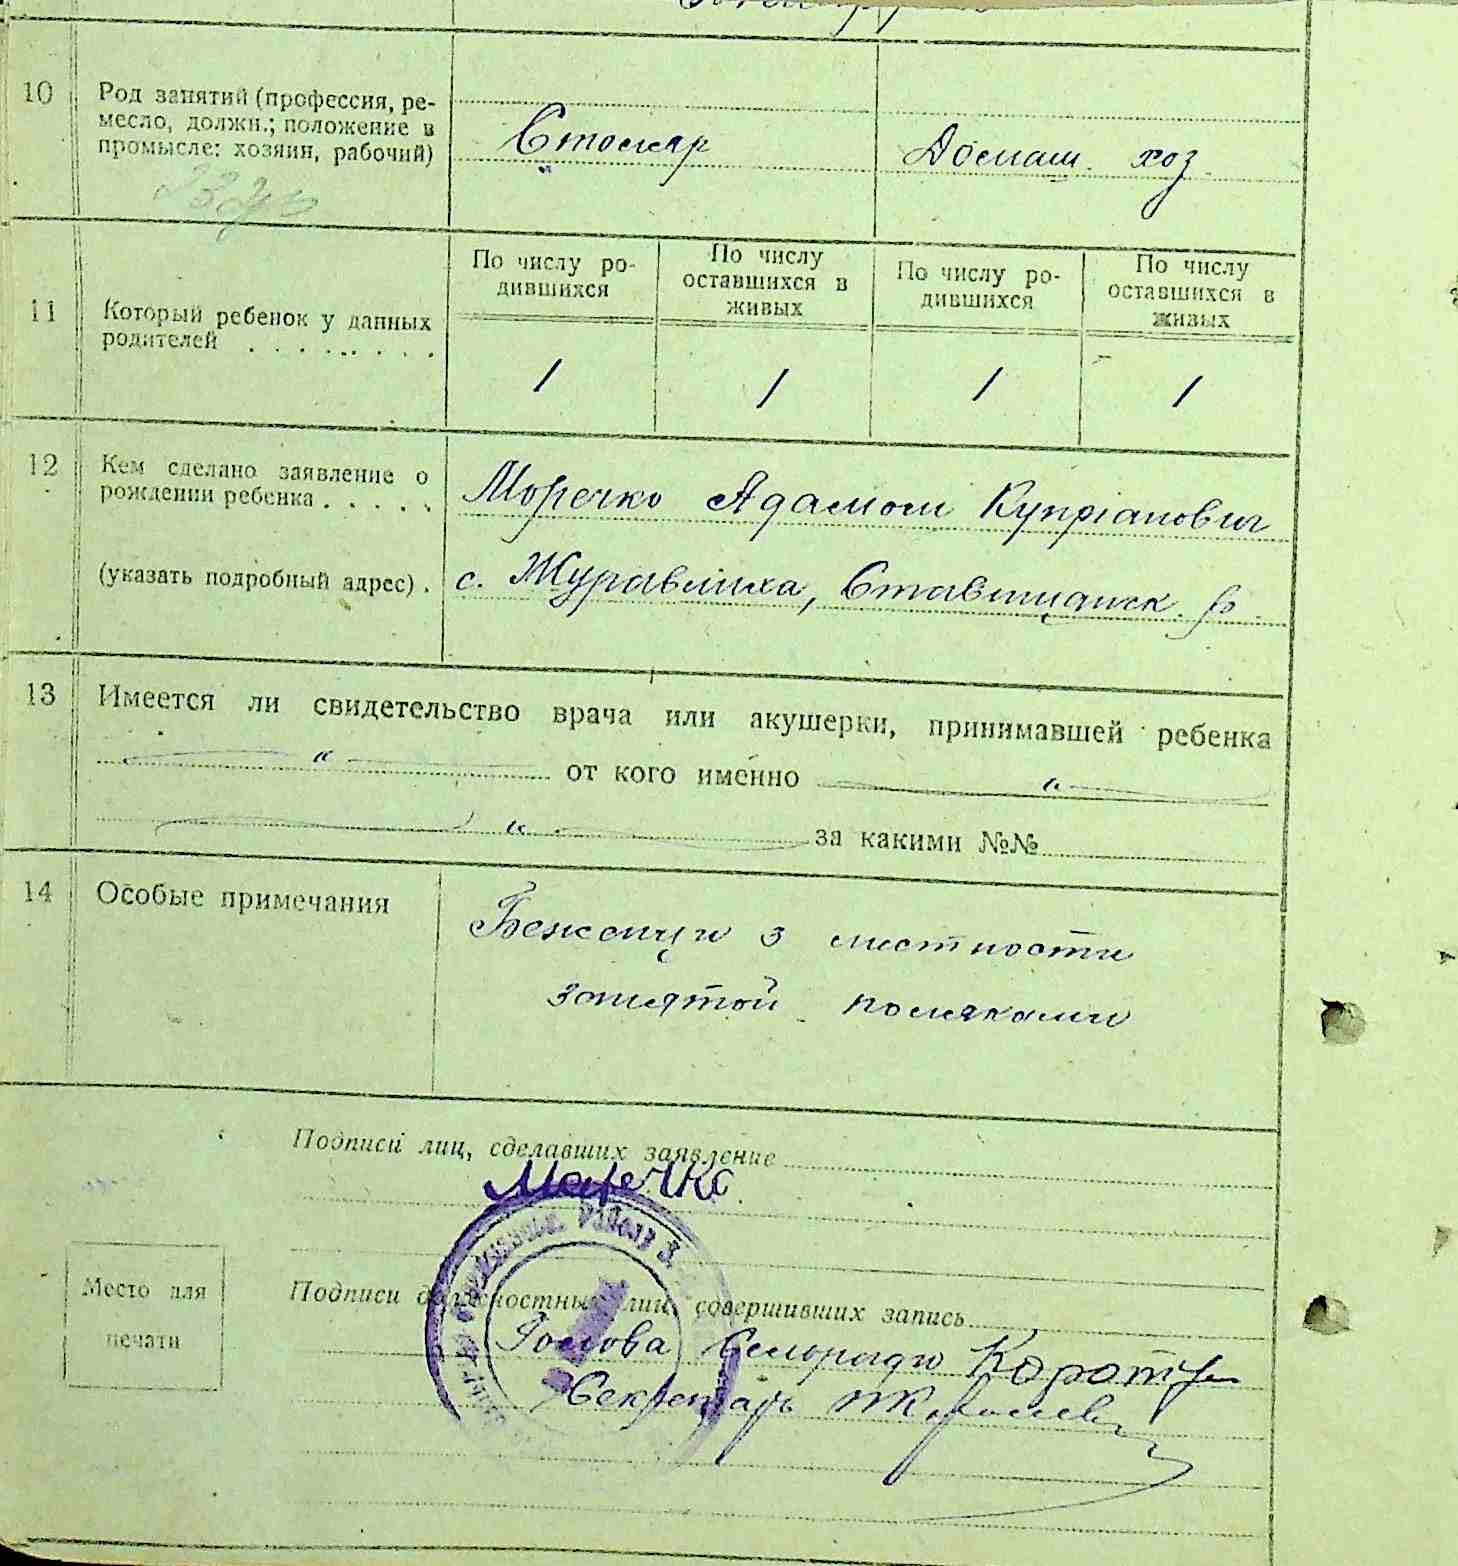 10
Род занятий (профессия, ре-
месло, должн.; положение в
промысле: хозяин, рабочий)
Столяр
Домаш. хоз.
11
Который ребенок у данных
родителей . . . . . . . .
По числу ро-
дившихся
По числу
оставшихся в
живых
По числу ро-
дившихся
По числу
оставшихся в
живых
1 1 1 1
12
Кем сделано заявление о
рождении ребенка . . . . .
(указать подробный адрес) .
Моречко Адамом Купріанович
с. Журавлиха, Ставищанск. р.
13
Имеется ли свидетельство врача или акушерки, принимавшей ребенка
" от кого именно "
" за какими №№
14
Особые примечания
Беженци з местности
занятой поляками
Подписи лиц, сделавших заявление
Маречко
Место для
печати
Подписи должностных лиц, совершивших запись
Голова Сельради
Секретарь